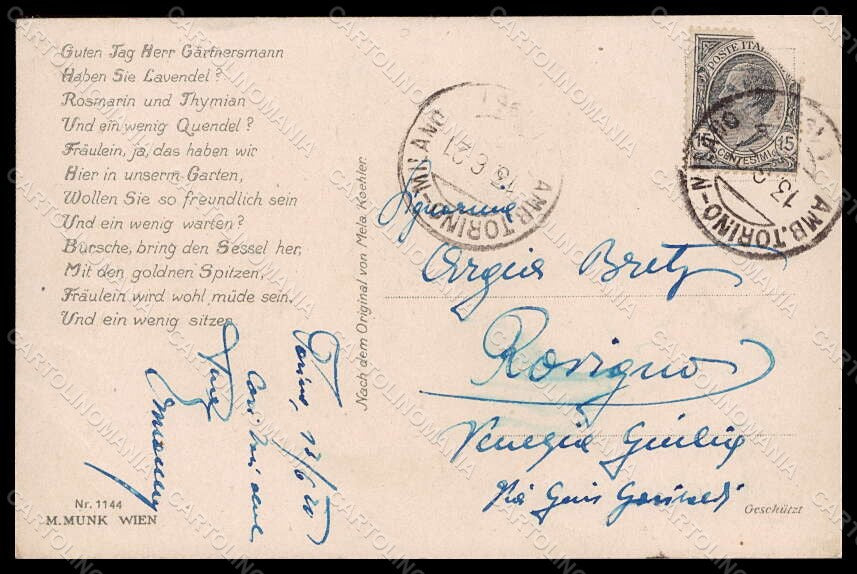 Guten Tag Herr Gärtnersmann
Haben Sie Lavendel?
Rosmarin und Thymian
Und ein wenig Quendel?
Fräulein, ja, das haben wir
Hier in unserm Garten,
Wollen Sie so freundlich sein
Und ein wenig warten?
Bursche, bring den Sessel her,
Mit den goldnen Spitzen,
Fräulein wird wohl müde sein,
Und ein wenig sitzen
Nr. 1144
M. MUNK WIEN
Nach dem Original von Mela Koehler.
Torino,
POSTE ITAL
15 CENTESIMI 15
AMB. TORINO-MILANO
13 6 21
AMB. TORINO-MILANO
13
Signorina
Argia Bretz
Rovigno
Venezia Giulia
Via Garibaldi
Geschützt
CARTOLINOMANIA